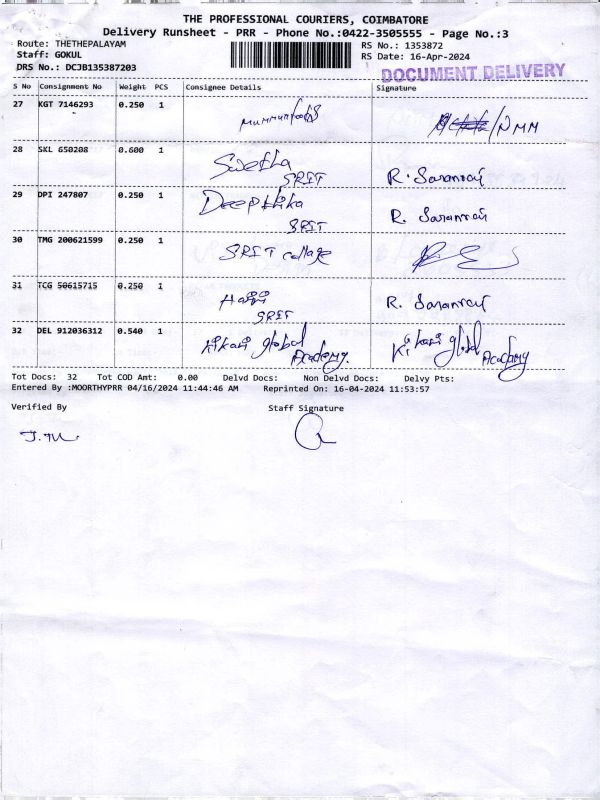 THE PROFESSIONAL COURIERS, COIMBATORE
Delivery Runsheet - PRR - Phone No.:0422-3505555 - Page No.:3
Route: THETHEPALAYAM RS No.: 1353872
Staff: GOKUL RS Date: 16-Apr-2024
DRS No.: DCJB135387203 DOCUMENT DELIVERY
S No Consignment No Weight PCS Consignee Details Signature
27 KGT 7146293 0.250 1
28 SKL 650208 0.600 1 Swetha
SRIT R. Saranraj
29 DPI 247807 0.250 1 Deepthika
SRIT R. Saranraj
30 TMG 200621599 0.250 1 SRIT collage
31 TCG 50615715 0.250 1 Harini
SRIT R. Saranraj
32 DEL 912036312 0.540 1 Kikani global Kikani global
Academy. Academy
Tot Docs: 32 Tot COD Amt: 0.00 Delvd Docs: Non Delvd Docs: Delvy Pts:
Entered By :MOORTHYPRR 04/16/2024 11:44:46 AM Reprinted On: 16-04-2024 11:53:57
Verified By Staff Signature